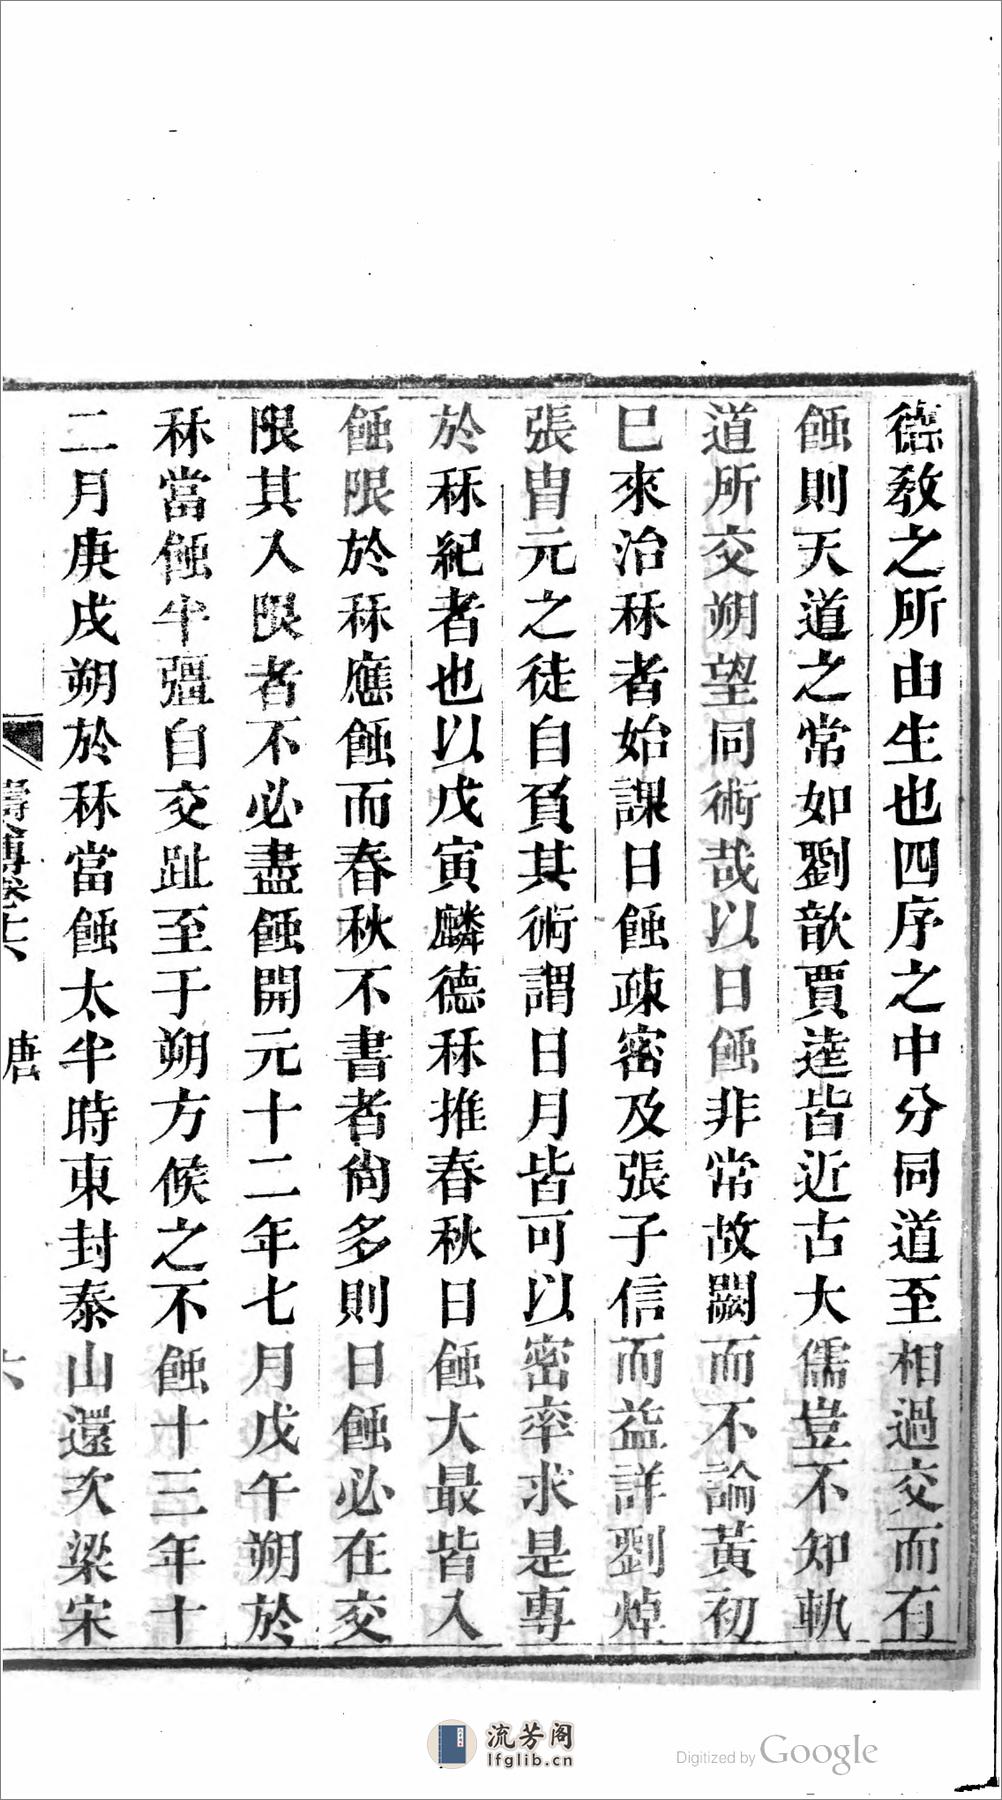 德敎之所由生也四序之中分同道至相過交而有
蝕則天道之常如劉歆賈逵皆近古大儒豈不知軌
道所交朔望同術哉以日蝕非常故闕而不論黃初
已來治秝者始課日蝕疎密及張子信而益詳劉焯
張冑元之徒自負其術謂日月皆可以密率求是專
於秝紀者也以戊寅麟德秝推春秋日蝕大最皆入
蝕限於秝應蝕而春秋不書者尙多則日蝕必在交
限其入限者不必盡蝕開元十二年七月戊午朔於
秝當蝕半彊自交趾至于朔方候之不蝕十三年十
二月庚戌朔於秝當蝕太半時東封泰山還次梁宋
疇人傳卷十六 唐 六
流芳阁
lfglib.cn
Digitized by Google